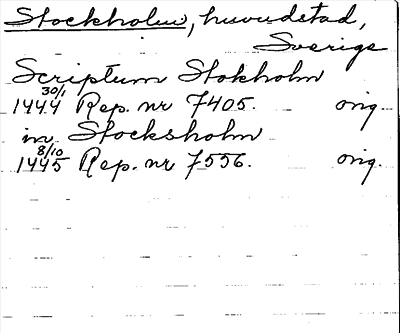 Stockholm, huvudstad,
Sverige
Scriptum Stokholm
1444 30/1 Rep. nr 7405. orig.
in Stocksholm
1445 8/10 Rep. nr 7556. orig.